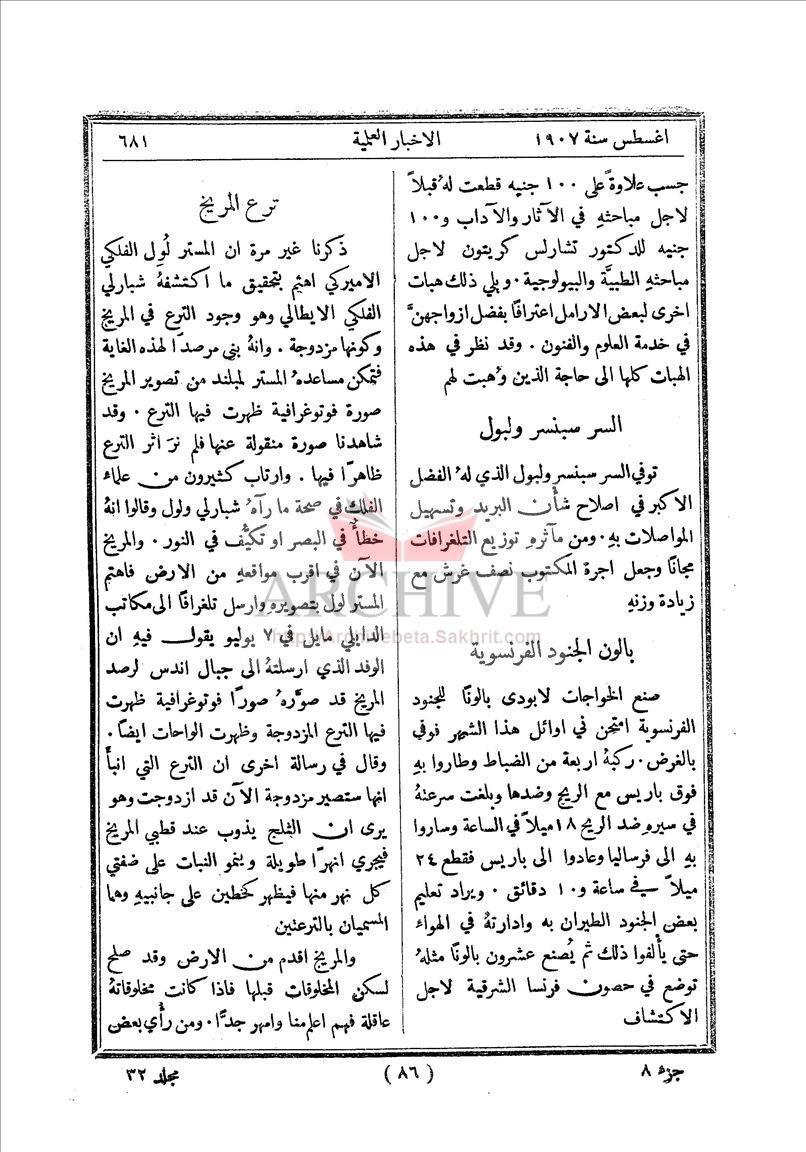 اغسطس سنة ١٩٠٧
الاخبار العلمية
٦٨١
جسب علاوةً على ١٠٠ جنيه قطعت لهُ قبلاً
لاجل مباحثهِ في الآثار والآداب و١٠٠
جنيه للدكتور تشارلس كريتون لاجل
مباحثهِ الطبيَّة والبيولوجية . ويلي ذلك هبات
اخرى لبعض الارامل اعترافًا بفضل ازواجهنَّ
في خدمة العلوم والفنون . وقد نظر في هذه
الهبات كلها الى حاجة الذين وُهبت لهم
السر سبنسر ولبول
توفي السر سبنسر ولبول الذي لهُ الفضل
الاكبر في اصلاح شأن البريد وتسهيل
المواصلات بهِ . ومن مآثرهِ توزيع التلغرافات
مجانًا وجعل اجرة المكتوب نصف غرش مع
زيادة وزنهِ
بالون الجنود الفرنسوية
صنع الخواجات لابودى بالونًا للجنود
الفرنسوية امتحن في اوائل هذا الشهر فوفي
بالغرض . ركبهُ اربعة من الضباط وطاروا بهِ
فوق باريس مع الريح وضدها وبلغت سرعتهُ
في سيره ضد الريح ١٨ ميلاً في الساعة وساروا
بهِ الى فرساليا وعادوا الى باريس فقطع ٢٤
ميلاً في ساعة و١٠ دقائق . ويراد تعليم
بعض الجنود الطيران به وادارتهُ في الهواء
حتى يألفوا ذلك ثم يُصنع عشرون بالونًا مثلهُ
توضع في حصون فرنسا الشرقية لاجل
الاكتشاف
ترع المريخ
ذكرنا غير مرة ان المستر لُوِل الفلكي
الاميركي اهتم بتحقيق ما اكتشفهُ شبارلي
الفلكي الايطالي وهو وجود الترع في المريخ
وكونها مزدوجة . وانهُ بنى مرصدًا لهذه الغاية
فتمكن مساعدهُ المستر لمبلند من تصوير المريخ
صورة فوتوغرافية ظهرت فيها الترع . وقد
شاهدنا صورة منقولة عنها فلم نرَ اثر الترع
ظاهرًا فيها . وارتاب كثيرون من علماء
الفلك في صحة ما رآهُ شبارلي ولول وقالوا انهُ
خطأٌ في البصر او تكيُّف في النور . والمريخ
الآن في اقرب مواقعهِ من الارض فاهتم
المستر لول بتصويره وارسل تلغرافًا الى مكاتب
الدايلي مايل في ٧ يوليو يقول فيهِ ان
الوفد الذي ارسلتهُ الى جبال اندس لرصد
المريخ قد صوَّرهُ صورًا فوتوغرافية ظهرت
فيها الترع المزدوجة وظهرت الواحات ايضًا .
وقال في رسالة اخرى ان الترع التي انبأ
انها ستصير مزدوجة الآن قد ازدوجت وهو
يرى ان الثلج يذوب عند قطبي المريخ
فيجري انهرًا طويلة وينمو النبات على ضفتي
كل نهر منها فيظهر كخطين على جانبيهِ وهما
المسميان بالترعتين
والمريخ اقدم من الارض وقد صلح
لسكن المخلوقات قبلها فاذا كانت مخلوقاتهُ
عاقلة فهم اعلم منا وامهر جدًّا . ومن رأي بعض
جزء ٨
( ٨٦ )
مجلد ٣٢
ARCHIVE